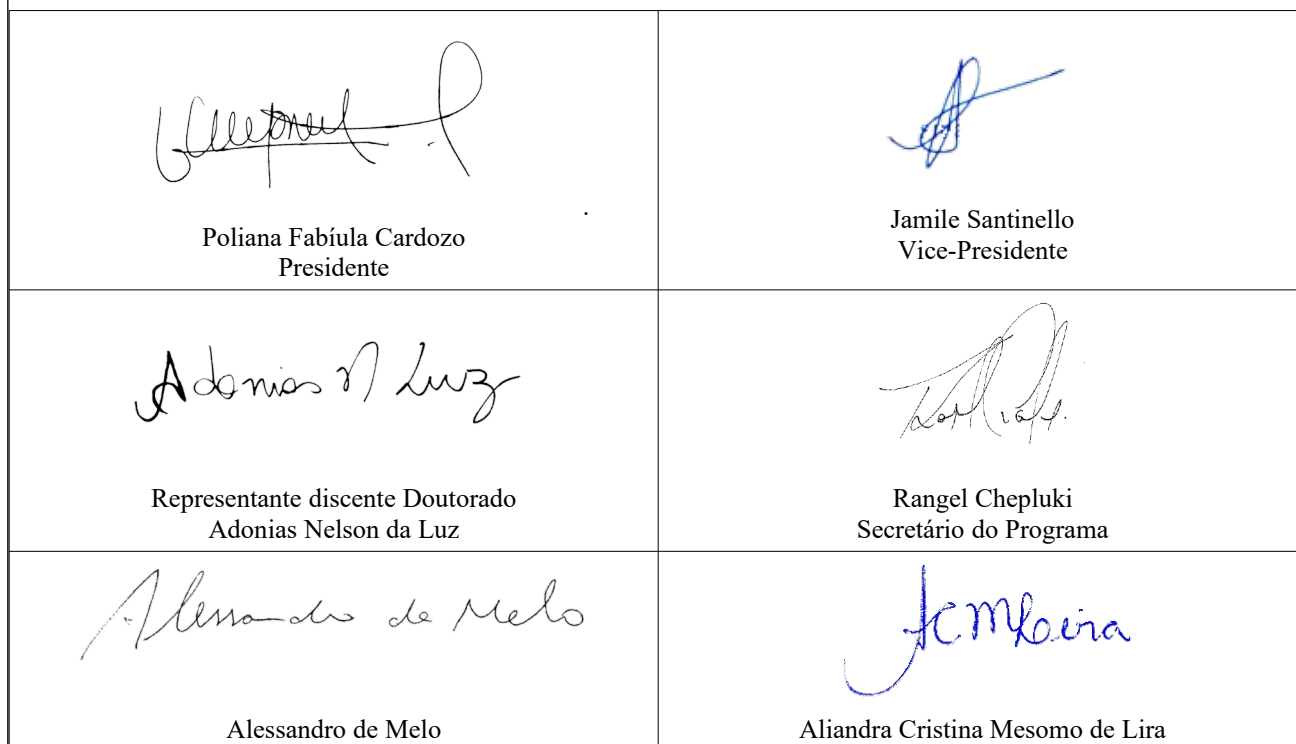 Poliana Fabíula Cardozo
Presidente
Jamile Santinello
Vice-Presidente
Adonias N Luz
Representante discente Doutorado
Adonias Nelson da Luz
Rangel Chepluki
Secretário do Programa
Alessandro de Melo
Alessandro de Melo
ACMLira
Aliandra Cristina Mesomo de Lira